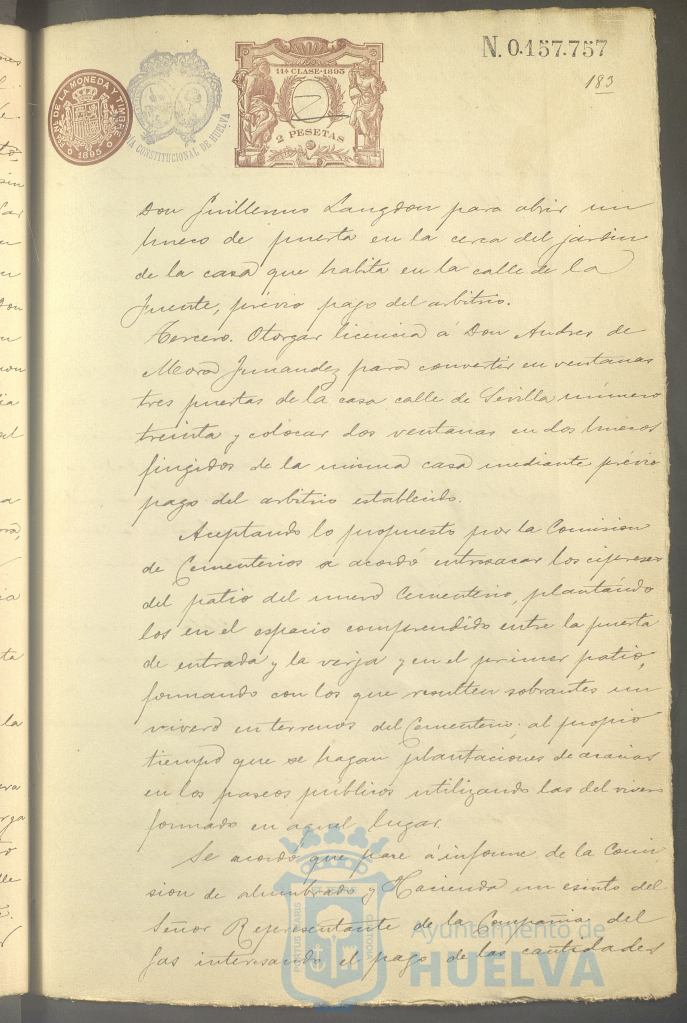 N. 0.157.757
183
11ª CLASE-1895
2 PESETAS
1895
CONSTITUCIONAL DE HUELVA
Don Guillermo Langdon para abrir un
hueco de puerta en la cerca del jardin
de la casa que habita en la calle de la
Fuente, prévio pago del arbitrio.
Tercero. Otorgar licencia á Don Andres de
Mora Fernandez para convertir en ventanas
tres puertas de la casa calle de Sevilla número
treinta y colocar dos ventanas en dos huecos
fingidos de la misma casa mediante prévio
pago del arbitrio establecido.
Aceptando lo propuesto por la Comision
de Cementerios se acordó entresacar los cipreses
del patio del nuevo Cementerio, plantándo
los en el espacio comprendido entre la puerta
de entrada y la verja y en el primer patio,
formando con los que resulten sobrantes un
vivero en terrenos del Cementerio; al propio
tiempo que se hagan plantaciones de acacias
en los paseos públicos utilizando las del vivero
formado en aquel lugar.
Se acordó que pase á informe de la Comi
sion de alumbrado y Hacienda un escrito del
Señor Representante de la Compañia del
Gas interesando el pago de las cantidades
Ayuntamiento de
HUELVA